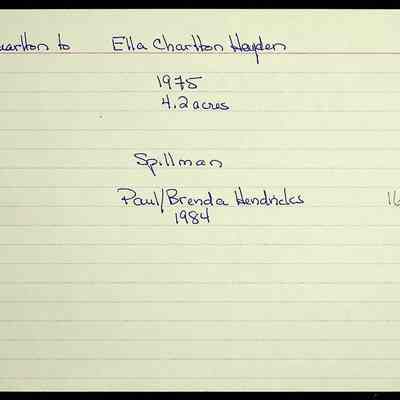 uarlton to Ella Charlton Hayden
1975
4.2 acres
Spillman
Paul/Brenda Hendricks 16
1984